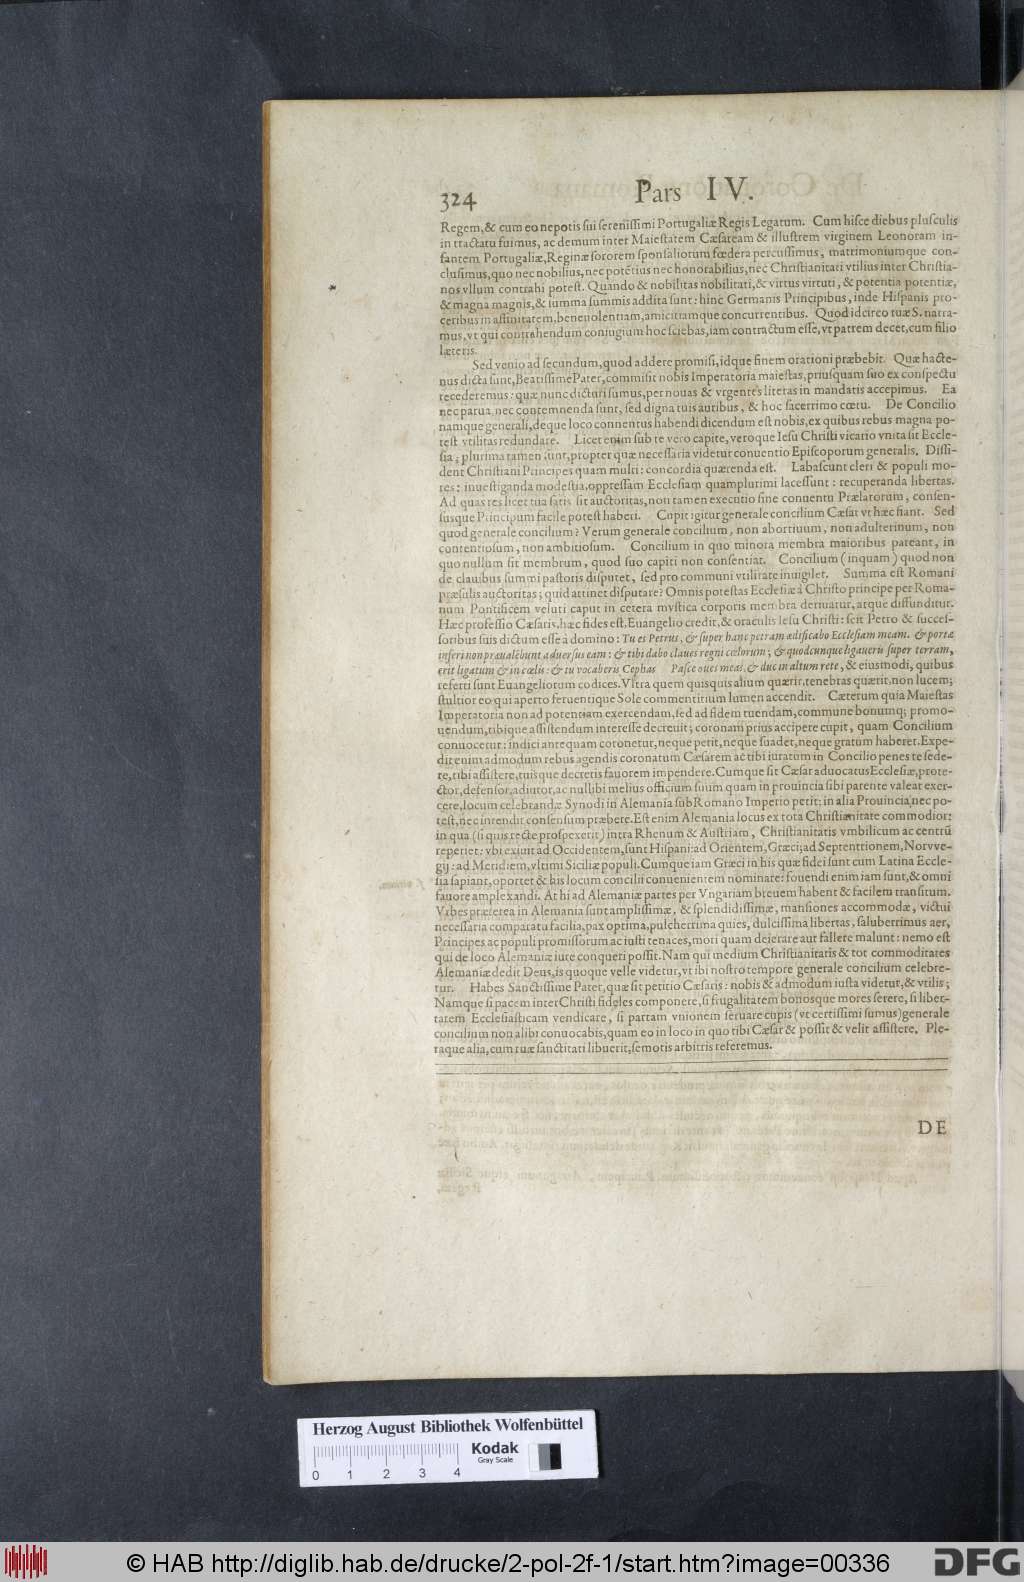 324 Pars IV.
Regem, & cum eo nepotis sui serenissimi Portugaliæ Regis Legatum. Cum hisce diebus plusculis
in tractatu fuimus, ac demum inter Maiestatem Cæsaream & illustrem virginem Leonoram in-
fantem Portugaliæ, Reginæ sororem sponsaliorum fœdera percussimus, matrimoniumque con-
clusimus, quo nec nobilius, nec potētius nec honorabilius, nec Christianitati vtilius inter Christia-
nos vllum contrahi potest. Quando & nobilitas nobilitati, & virtus virtuti, & potentia potentiæ,
& magna magnis, & summa summis addita sunt: hinc Germanis Principibus, inde Hispanis pro-
ceribus in affinitatem, beneuolentiam, amicitiamque concurrentibus. Quod idcirco tuæ S. narra-
mus, vt qui contrahendum conjugium hoc sciebas, iam contractum esse, vt patrem decet, cum filio
læteris.
Sed venio ad secundum, quod addere promisi, idque finem orationi præbebit. Quæ hacte-
nus dicta sunt, Beatissime Pater, commisit nobis Imperatoria maiestas, priusquam suo ex conspectu
recederemus: quæ nunc dicturi sumus, per nouas & vrgentes literas in mandatis accepimus. Ea
nec parua, nec contemnenda sunt, sed digna tuis auribus, & hoc sacerrimo cœtu. De Concilio
namque generali, deque loco conuentus habendi dicendum est nobis, ex quibus rebus magna po-
test vtilitas redundare. Licet enim sub te vero capite, veroque Iesu Christi vicario vnita sit Eccle-
sia, plurima tamen sunt, propter quæ necessaria videtur conuentio Episcoporum generalis. Dissi-
dent Christiani Principes quam multi: concordia quærenda est. Labascunt cleri & populi mo-
res: inuestiganda modestia, oppressam Ecclesiam quamplurimi lacessunt: recuperanda libertas.
Ad quas res licet tua satis sit auctoritas, non tamen executio sine conuentu Prælatorum, consen-
susque Principum facile potest haberi. Cupit igitur generale concilium Cæsar vt hæc fiant. Sed
quod generale concilium? Verum generale concilium, non abortiuum, non adulterinum, non
contentiosum, non ambitiosum. Concilium in quo minora membra maioribus pareant, in
quo nullum sit membrum, quod suo capiti non consentiat. Concilium (inquam) quod non
de clauibus summi pastoris disputet, sed pro communi vtilitate inuigilet. Summa est Romani
præsulis auctoritas; quid attinet disputare? Omnis potestas Ecclesiæ à Christo principe per Roma-
num Pontificem veluti caput in cetera mystica corporis membra deriuatur, atque diffunditur.
Hæc professio Cæsaris, hæc fides est, Euangelio credit, & oraculis Iesu Christi: scit Petro & succes-
soribus suis dictum esse à domino: Tu es Petrus, & super hanc petram ædificabo Ecclesiam meam. & portæ
inferi non præualebunt aduersus eam: & tibi dabo claues regni cœlorum; & quodcunque ligaueris super terram,
erit ligatum & in cœlis: & tu vocaberis Cephas Pasce oues meas, & duc in altum rete, & eiusmodi, quibus
referti sunt Euangeliorum codices. Vltra quem quisquis alium quærit, tenebras quærit, non lucem;
stultior eo qui aperto feruentique Sole commentitium lumen accendit. Cæterum quia Maiestas
Imperatoria non ad potentiam exercendam, sed ad fidem tuendam, commune bonumq; promo-
uendum, tibique assistendum interesse decreuit; coronam prius accipere cupit, quam Concilium
conuocetur: indici antequam coronetur, neque petit, neque suadet, neque gratum haberet. Expe-
dit enim admodum rebus agendis coronatum Cæsarem ac tibi iuratum in Concilio penes te sede-
re, tibi assistere, tuisque decretis fauorem impendere. Cumque sit Cæsar aduocatus Ecclesiæ, prote-
ctor, defensor, adiutor, ac nullibi melius officium suum quam in prouincia sibi parente valeat exer-
cere, locum celebrandæ Synodi in Alemania sub Romano Imperio petit: in alia Prouincia nec po-
test, nec intendit consensum præbere. Est enim Alemania locus ex tota Christianitate commodior:
in qua (si quis recte prospexerit) intra Rhenum & Austriam, Christianitatis vmbilicum ac centrū
reperiet: vbi exiunt ad Occidentem, sunt Hispani: ad Orientem, Græci: ad Septentrionem, Norvve-
gij: ad Meridiem, vltimi Siciliæ populi. Cumque iam Græci in his quæ fidei sunt cum Latina Eccle-
sia sapiant, oportet & his locum concilii conuenientem nominare: fouendi enim iam sunt, & omni
fauore amplexandi. At hi ad Alemaniæ partes per Vngariam breuem habent & facilem transitum.
Vrbes præterea in Alemania sunt amplissimæ, & splendidissimæ, mansiones accommodæ, victui
necessaria comparatu facilia, pax optima, pulcherrima quies, dulcissima libertas, saluberrimus aer,
Principes ac populi promissorum ac iusti tenaces, mori quam deierare aut fallere malunt: nemo est
qui de loco Alemaniæ iure conqueri possit. Nam qui medium Christianitatis & tot commoditates
Alemaniæ dedit Deus, is quoque velle videtur, vt ibi nostro tempore generale concilium celebre-
tur. Habes Sanctissime Pater, quæ sit petitio Cæsaris: nobis & admodum iusta videtur, & vtilis;
Namque si pacem inter Christi fideles componere, si frugalitatem bonosque mores serere, si liber-
tatem Ecclesiasticam vendicare, si partam vnionem seruare cupis (vt certissimi sumus) generale
concilium non alibi conuocabis, quam eo in loco in quo tibi Cæsar & possit & velit assistere. Ple-
raque alia, cum tuæ sanctitati libuerit, semotis arbitris referemus.
DE
Herzog August Bibliothek Wolfenbüttel
0 1 2 3 4
Kodak
Gray Scale
© HAB http://diglib.hab.de/drucke/2-pol-2f-1/start.htm?image=00336
DFG